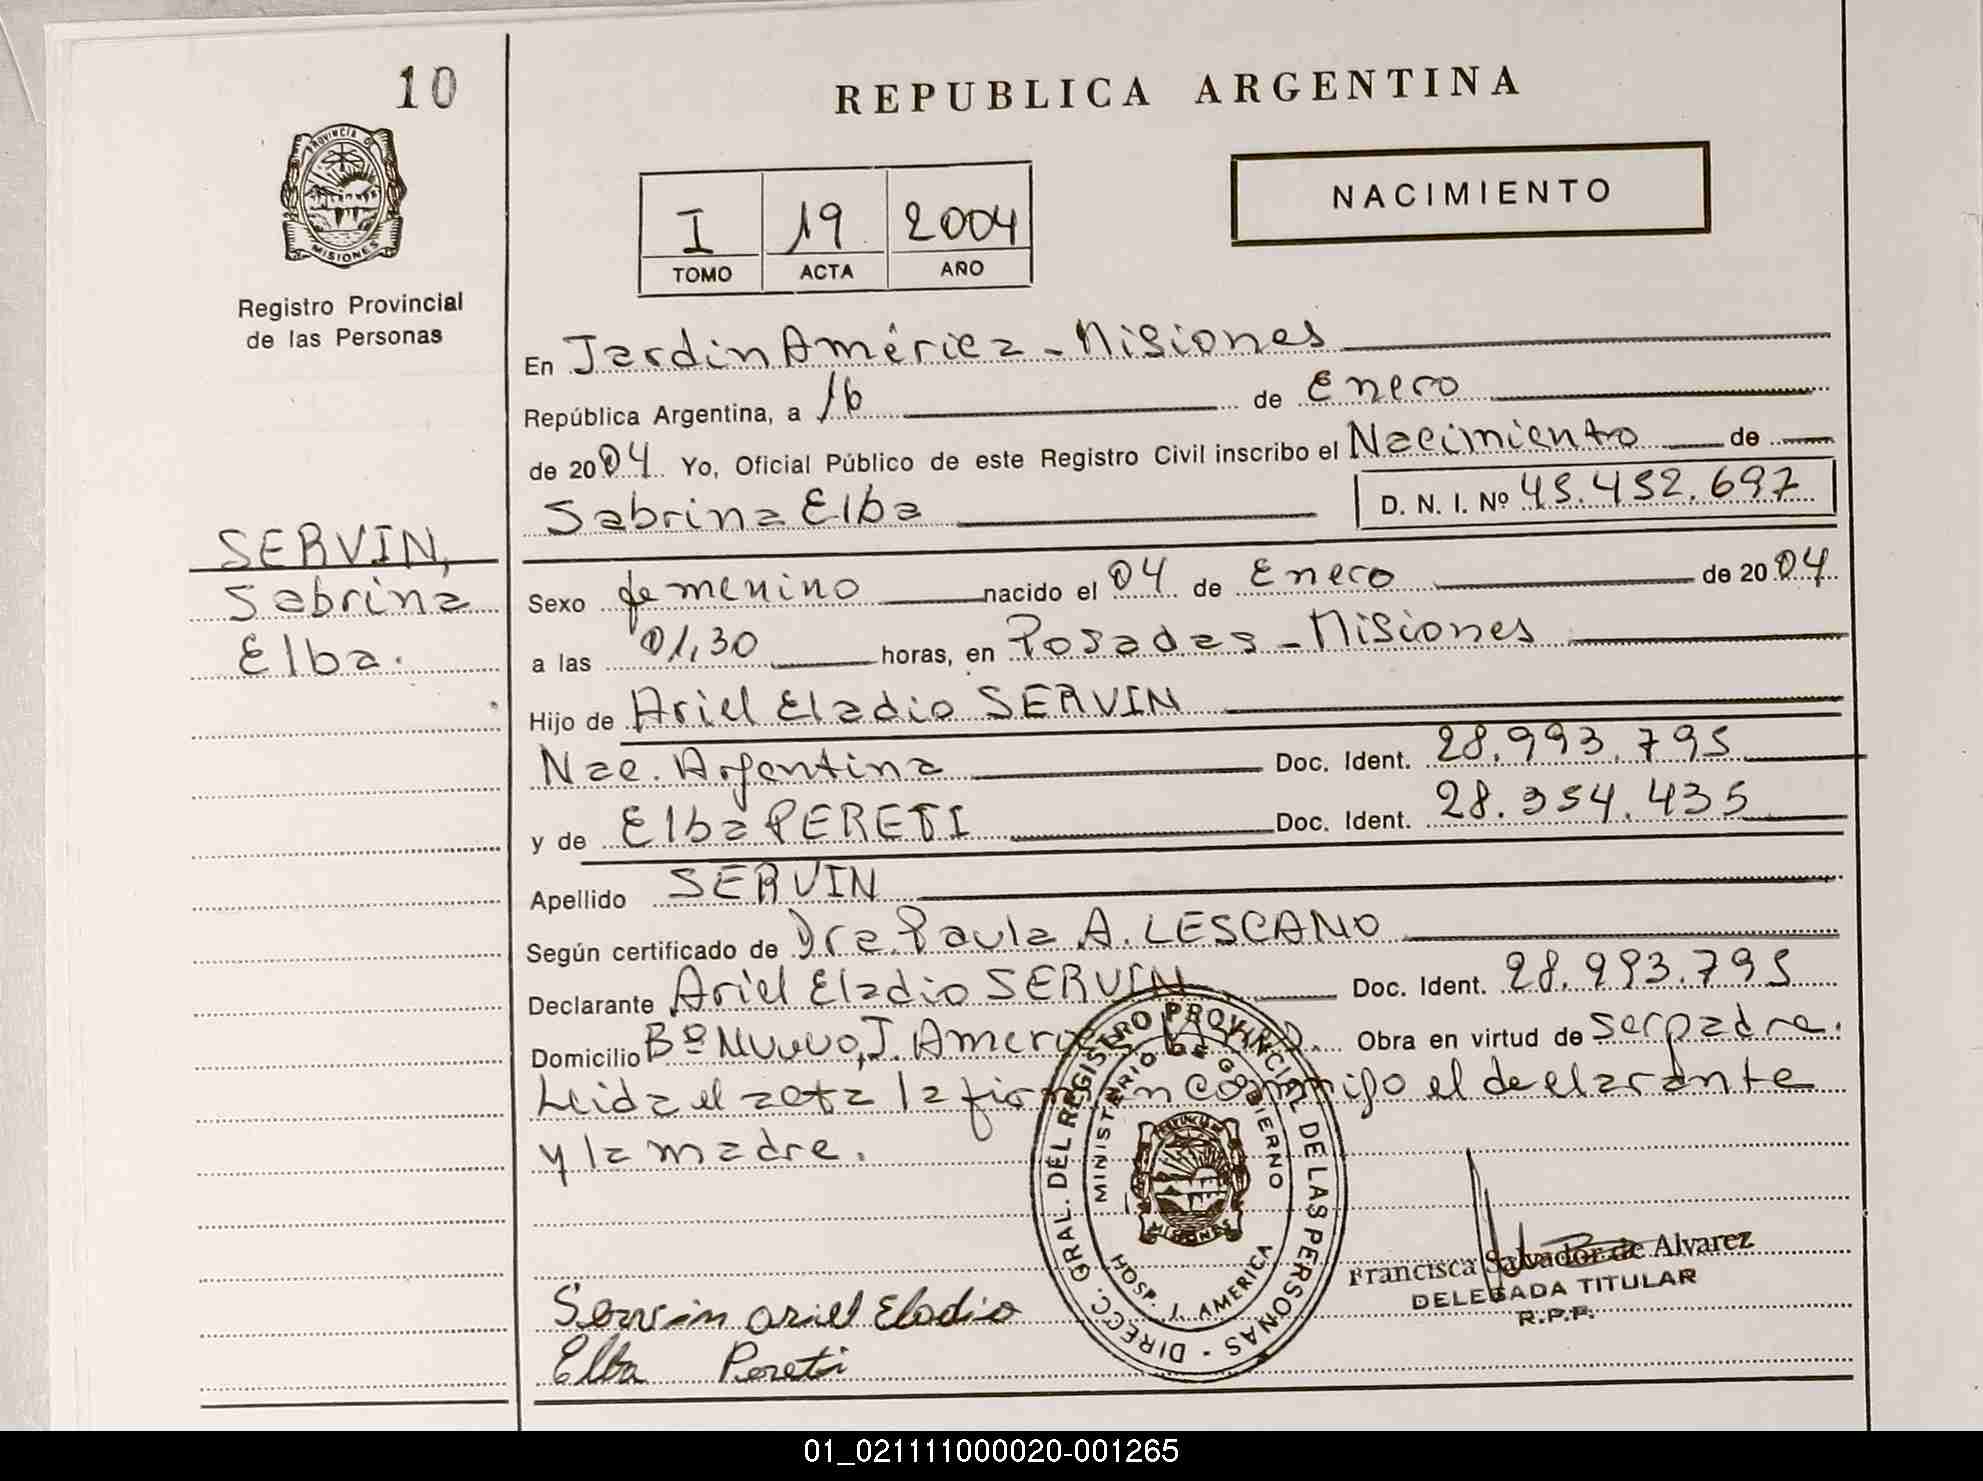 10
REPUBLICA ARGENTINA
PROVINCIA DE
MISIONES
Registro Provincial
de las Personas
NACIMIENTO
I 19 2004
TOMO ACTA AÑO
En Jardin América - Misiones
República Argentina, a 16 de Enero
de 2004 Yo, Oficial Público de este Registro Civil inscribo el Nacimiento de
Sabrina Elba D. N. I. Nº 45.452.697
SERVIN,
Sabrina
Elba.
Sexo femenino nacido el 04 de Enero de 2004
a las 01,30 horas, en Posadas - Misiones
Hijo de Ariel Eladio SERVIN
Nac. Argentina Doc. Ident. 28.993.795
y de Elba PERETI Doc. Ident. 28.354.435
Apellido SERVIN
Según certificado de Dra. Paula A. LESCANO
Declarante Ariel Eladio SERVIN Doc. Ident. 28.993.795
Domicilio Bº Nuevo, J. America Obra en virtud de ser padre.
Leida el acta la firman conmigo el declarante
y la madre.
DIRECC. GRAL. DEL REGISTRO PROVINCIAL DE LAS PERSONAS -
MINISTERIO DE GOBIERNO
MISIONES
HOSP. J. AMERICA
Francisca Salvador de Alvarez
DELEGADA TITULAR
R.P.P.
Servin ariel Eladio
Elba Pereti
01_021111000020-001265